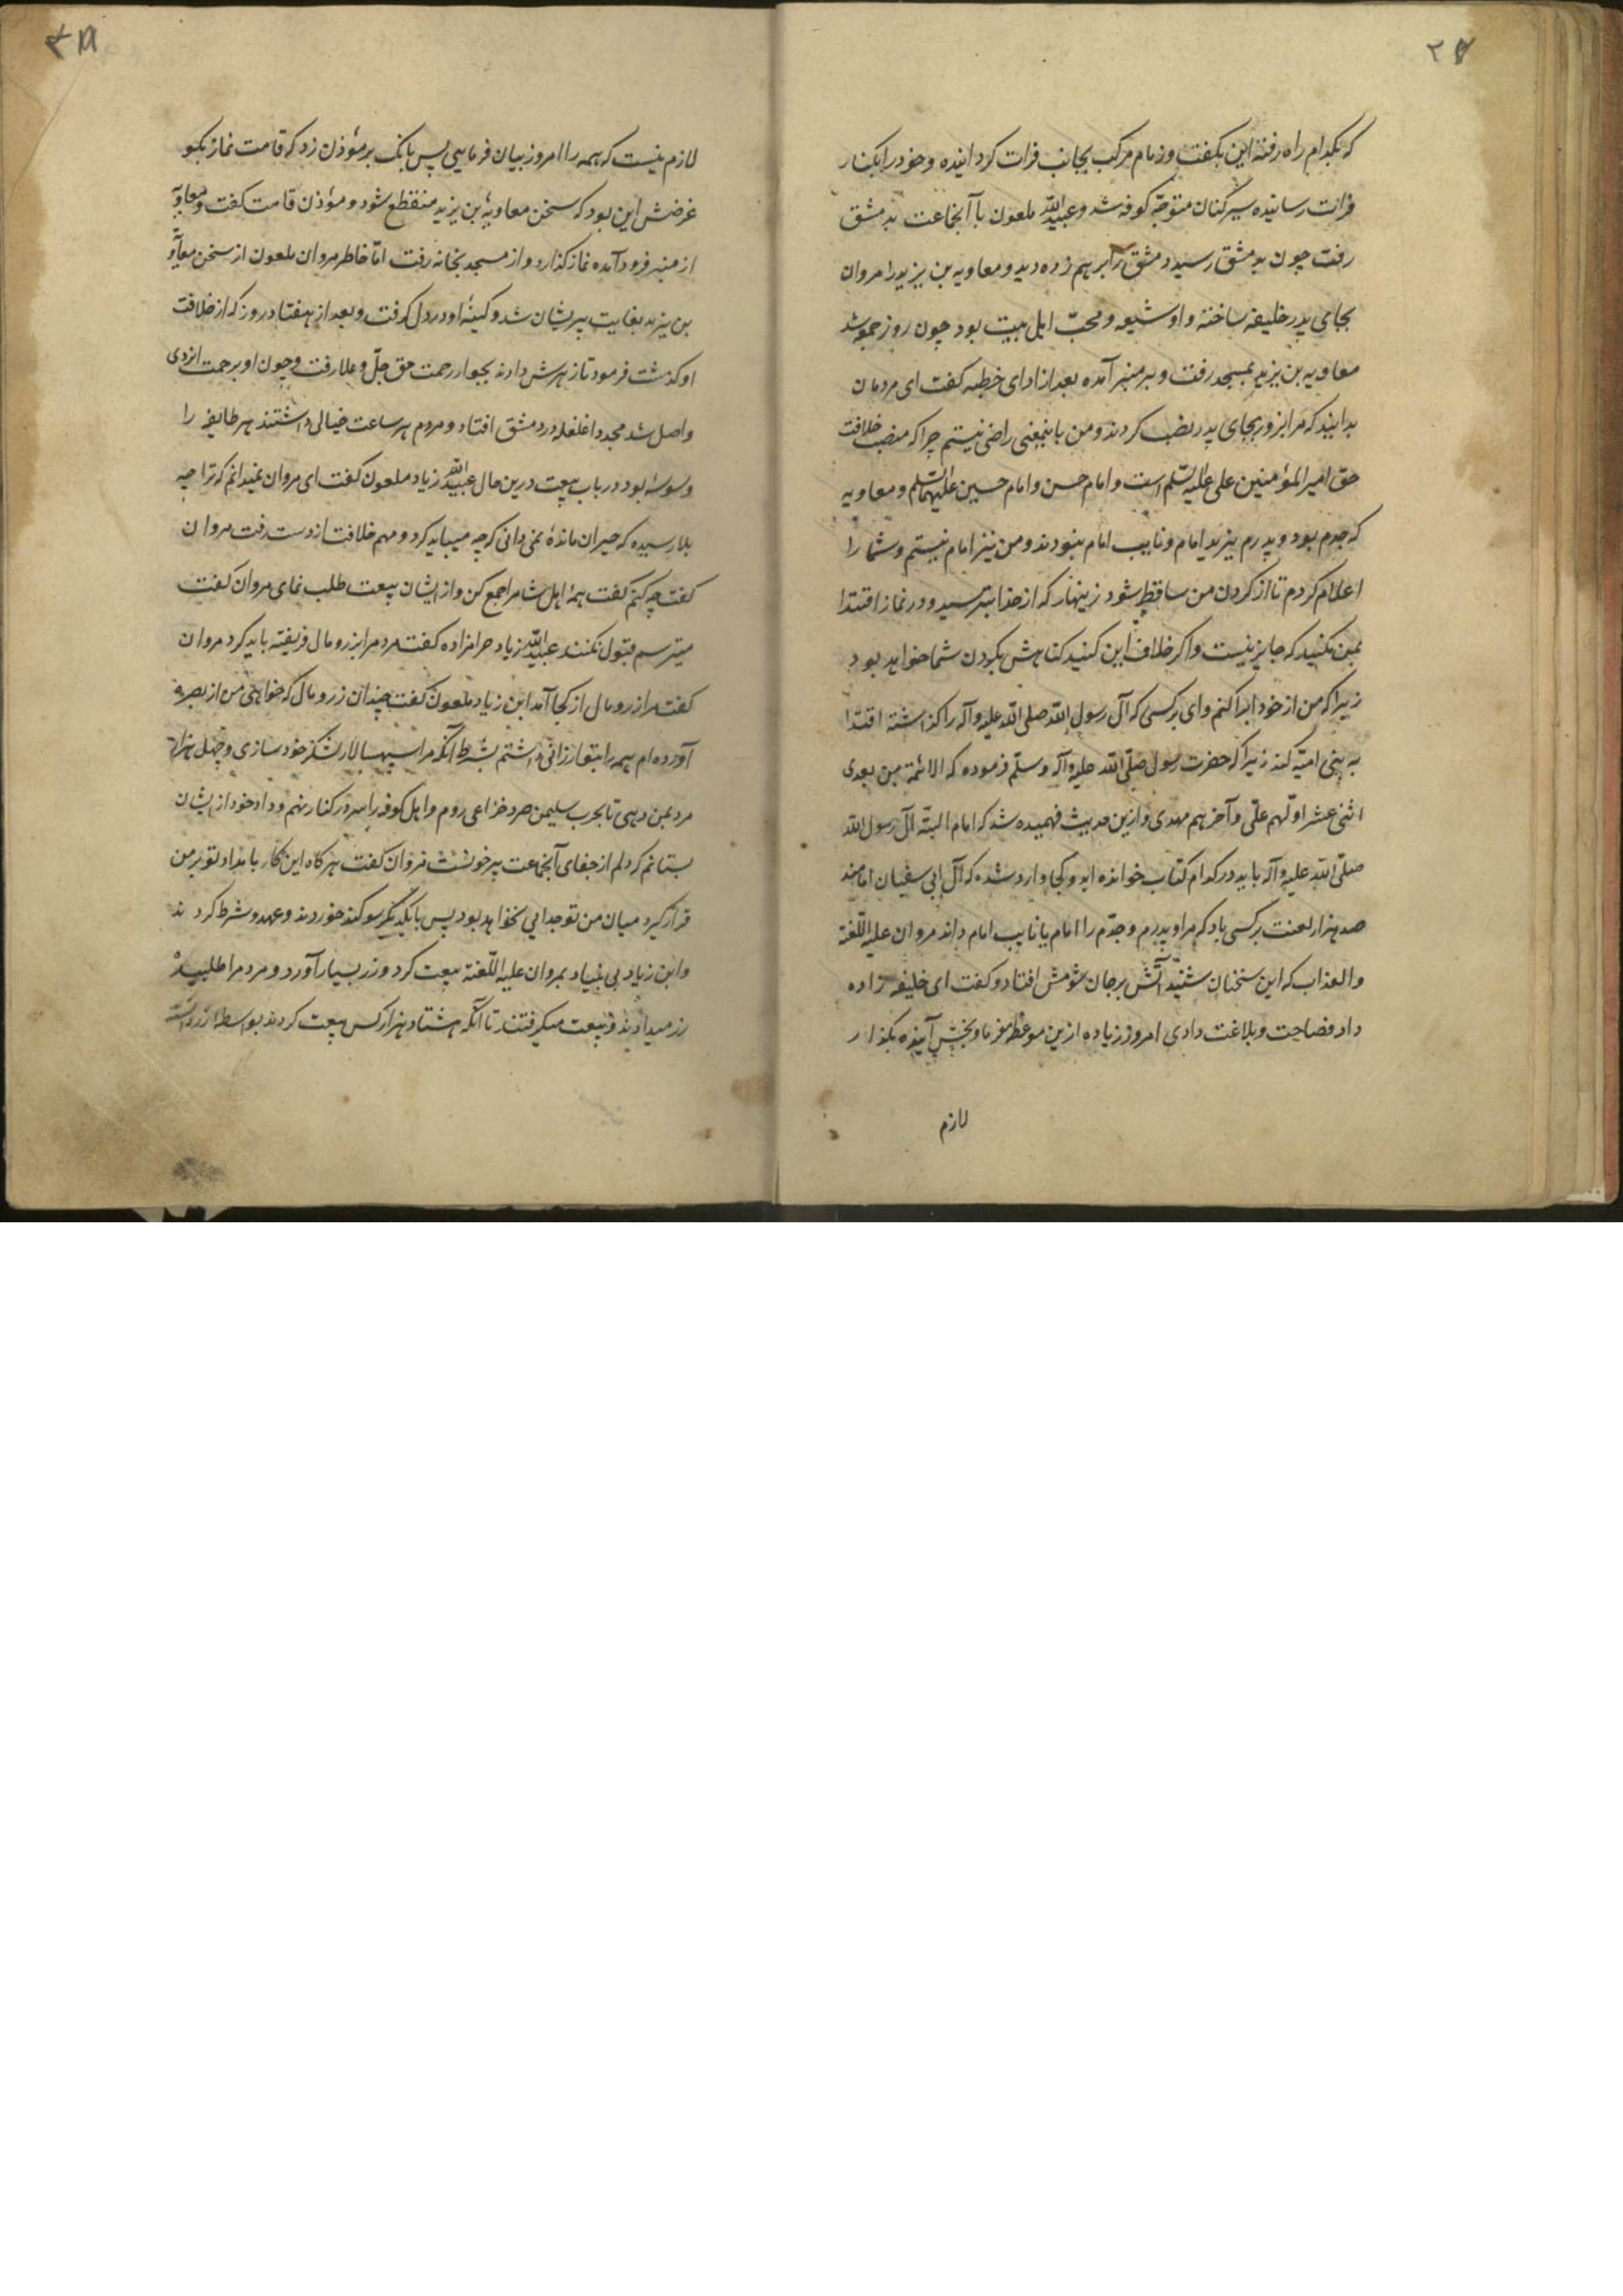 ۲۷
که بکدام راه رفته این بکفت و زمام مرکب بجانب فرات کردانیده و خود را بکنار
فرات رسانیده سیرکنان متوجّه کوفه شد و عبیدالله ملعون با آنجماعت بدمشق
رفت چون بدمشق رسید دمشق را برهم زده دید و معاویه بن یزید را مروان
بجای پدر خلیفه ساخته و او شیعه و محبّ اهل بیت بود چون روز جمعه شد
معاویه بن یزید بمسجد رفت و بر منبر آمده بعد از ادای خطبه کفت ای مردمان
بدانید که مرا بزور بجای پدر نصب کردند و من باینمعنی راضی نیستم چرا که منصب خلافت
حق امیر المؤمنین علی علیه السّلم است و امام حسن و امام حسین علیهما السّلم و معاویه
که جدم بود و پدرم یزید امام و نایب امام نبودند و من نیز امام نیستم و شما را
اعلام کردم تا از کردن من ساقط شود زینهار که از خدا بترسید و در نماز اقتدا
بمن مکنید که جایز نیست و اکر خلاف این کنید کناهش بکردن شما خواهد بود
زیرا که من از خود ابرا کنم وای بر کسی که آل رسول الله صلی الله علیه وآله را کذاشته اقتدا
به بنی امیّه کند زیرا که حضرت رسول صلّی الله علیه وآله وسلّم فرموده که الائمّة من بعدی
اثنی عشر اوّلهم علّی و آخرهم مهدی و ازین حدیث فهمیده شد که امام البتّه آل رسول الله
صلّی الله علیه وآله باید در کدام کتاب خوانده اید و کجا وارد شده که آل ابی سفیان امامند
صد هزار لعنت بر کسی باد که مرا و پدرم و جدّم را امام یا نایب امام داند مروان علیه اللّعنة
والعذاب که این سخنان شنید آتش بر جان شومش افتاد و کفت ای خلیفه زاده
داد فصاحت و بلاغت دادی امروز زیاده ازین موعظه مفرما و بخش آینده بکذار
لازم
۲۸
لازم نیست که همه را امروز بیان فرمایی پس بانک بر مؤذن زد که قامت نماز بکو
غرضش این بود که سخن معاویهٔ بن یزید منقطع شود و مؤذن قامت کفت و معاویه
از منبر فرود آمده نماز کذارد و از مسجد بخانه رفت امّا خاطر مروان ملعون از سخن معاویه
بن یزید بغایت پریشان شد و کینهٔ او در دل کرفت و بعد از هفتاد روز که از خلافت
او کذشت فرمود تا زهرش دادند بجوار رحمت حق جلّ و علا رفت و چون او برحمت ایزدی
واصل شد مجددا غلغله در دمشق افتاد و مردم هر ساعت خیالی داشتند هر طایفه را
وسوسهٔ بود در باب بیعت درین حال عبیدالله زیاد ملعون کفت ای مروان نمیدانم که ترا چه
بلا رسیده که حیران ماندهٔ نمی دانی که چه میباید کرد و مهم خلافت از دست رفت مروان
کفت چه کنم کفت همهٔ اهل شام را جمع کن و از ایشان بیعت طلب نمای مروان کفت
میترسم قبول نکنند عبیدالله زیاد حرامزاده کفت مردم را بزر و مال فریفته باید کرد مروان
کفت مرا زر و مال از کجا آمد ابن زیاد ملعون کفت چندان زر و مال که خواهی من از بصره
آورده ام همه را بتو ارزانی داشتم بشرط آنکه مرا سپهسالار لشکر خود سازی و چهل هزار
مرد بمن دهی تا بحرب سلیمن صرد خزاعی روم و اهل کوفه را سر در کنار نهم و داد خود از ایشان
بستانم که دلم از جفای آنجماعت پر خونست مروان کفت هر کاه این کار بامداد تو بر من
قرار کیرد میان من تو جدایی نخواهد بود پس با یکدیکر سوکند خوردند و عهد و شرط کردند
و ابن زیاد بی بنیاد بمروان علیه اللّعنة بیعت کرد و زر بسیار آورد و مردم را طلبیده
زر میدادند و بیعت میکرفتند تا آنکه هشتاد هزار کس بیعت کردند بواسطه